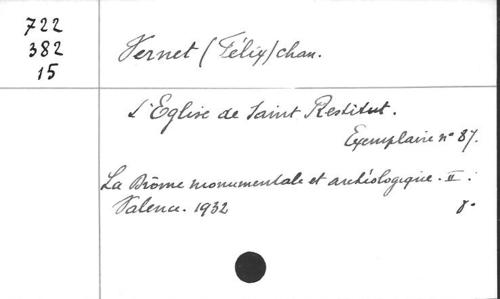 722
382
15
Vernet (Félix) chan.
L'Eglise de Saint Restitut.
Exemplaire n° 87.
La Drôme monumentale et archéologique. II.
Valence. 1932